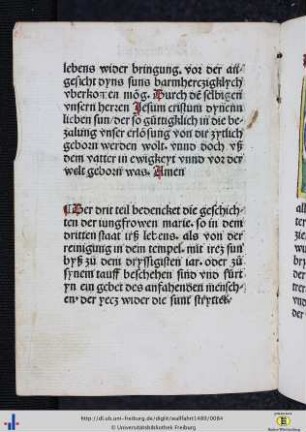 lebens wider bringung. vor der an-
gesicht dyns suns barmherczigklych
vberkomen mög. Durch dē selbigen
vnsern herren Jesum cristum dynenn
lieben sun/der so güttigklich in die be-
zalung vnser erlösung von dir zytlich
geborn werden wolt. vnnd doch vß
dem vatter in ewigkeyt vnnd vor der
welt geborn was. Amen
¶ Der drit teil bedencket die geschich-
ten der iungfrowen marie. so in dem
dritten staat irß lebens. als von der
reinigung in dem tempel. mit irez sun
byß zů dem dryssigisten iar. oder zů
synem tauff beschehen sind vnd
yn ein gebet des anfahenden mensch-
en. der yecz wider die sünd stryttet.
http://dl.ub.uni-freiburg.de/diglit/wallfahrt1489/0084
© Universitätsbibliothek Freiburg